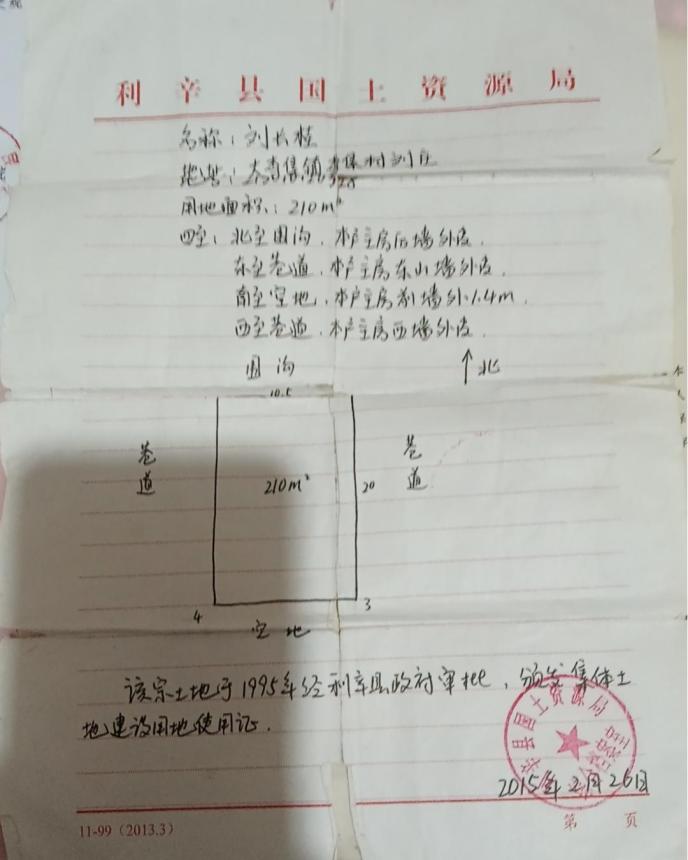 利辛县国土资源局
名称:刘长桂
地址:大李集镇李集村刘庄
用地面积:210m²
四至:北至围沟,本户主房后墙外皮.
东至巷道,本户主房东山墙外皮.
南至空地,本户主房前墙外1.4m.
西至巷道,本户主房西墙外皮.
围沟
北
10.5
巷道
巷道
210m²
20
4
3
空地
该宗土地于1995年经利辛县政府审批,颁发集体土
地建设用地使用证.
辛县国土资源局
2015年2月26日
11-99(2013.3)
第 页